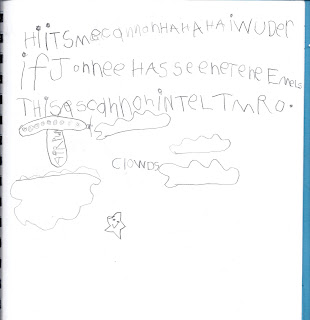 HiitSmecannonHAHAHAiWUDer
ifJonneeHASseeneteneEmelo
THisascannoninTELTMRO.
CloWDS